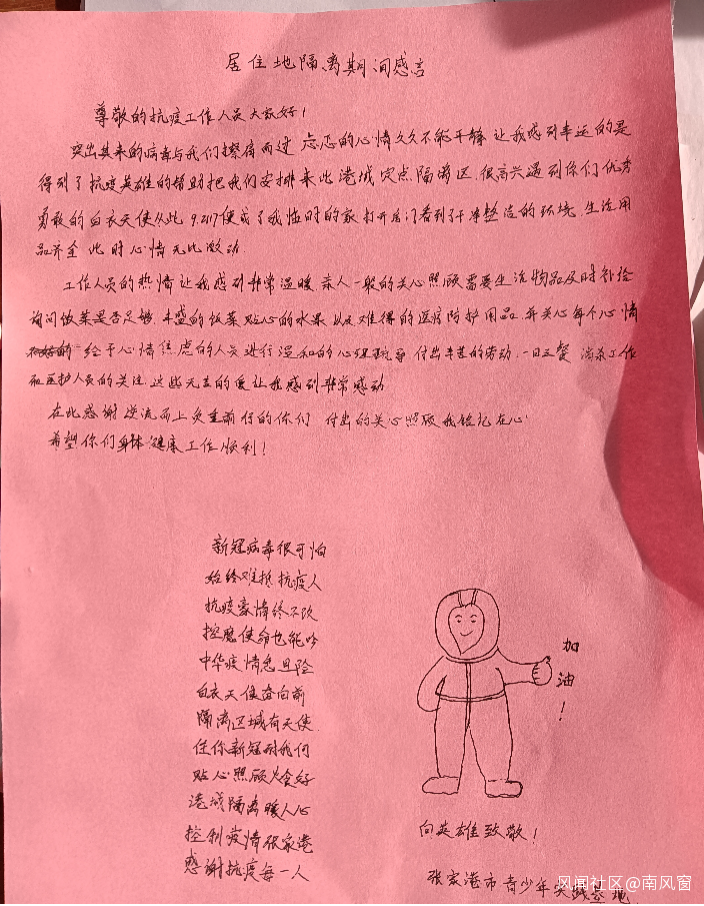 居住地隔离期间感言
尊敬的抗疫工作人员大家好！
突出其来的病毒与我们擦肩而过 忐忑的心情久久不能平静 让我感到幸运的是
得到了抗疫英雄的帮助把我们安排来此港城定点隔离区.很高兴遇到你们优秀
勇敢的白衣天使从此 9.2117便成了我临时的家 打开房门看到了干净整洁的环境.生活用
品齐全 此时心情无比激动.
工作人员的热情让我感到非常温暖.亲人一般的关心照顾需要生活物品及时补给
询问饭菜是否足够.丰盛的饭菜贴心的水果 以及难得的医疗防护用品.并关心每个心情
给予心情焦虑的人员进行温和的心理疏导 付出辛苦的劳动.一日三餐 消杀工作
和医护人员的关注.这些无言的爱让我感到非常感动
在此感谢逆流而上负重前行的你们 付出的关心照顾我铭记在心.
希望你们身体健康工作顺利！
新冠病毒很可怕
始终难抵抗疫人
抗疫豪情终不改
控魔使命也能吟
中华疫情息且险
白衣天使奋向前
隔离区域有天使.
任你新冠耐我何
贴心照顾火食好
港城隔离暖人心
控制疫情张家港
感谢抗疫每一人
加
油
！
向英雄致敬！
张家港市青少年实践基地
风闻社区@南风窗